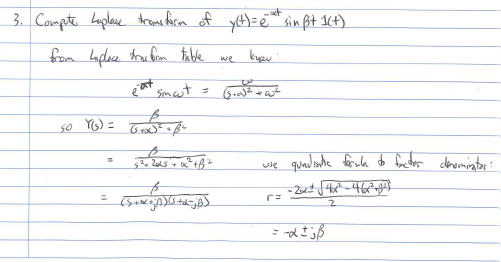 3. Compute Laplace transform of y(t)=e^{-αt} sin βt 1(t)
from Laplace transform table we know
e^{-at} sin ωt = ω/((s+a)²+ω²)
so Y(s) = β/((s+α)²+β²)
= β/(s²+2αs+α²+β²)
use quadratic formula to factor denominator:
= β/((s+α+jβ)(s+α-jβ))
r = (-2α±√(4α²-4(α²+β²)))/2
= -α±jβ